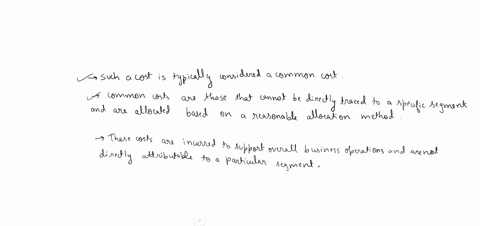 → Such a cost is typically considered a common cost.
→ Common costs are those that cannot be directly traced to a specific segment
and are allocated based on a reasonable allocation method.
→ These costs are incurred to support overall business operations and are not
directly attributable to a particular segment.